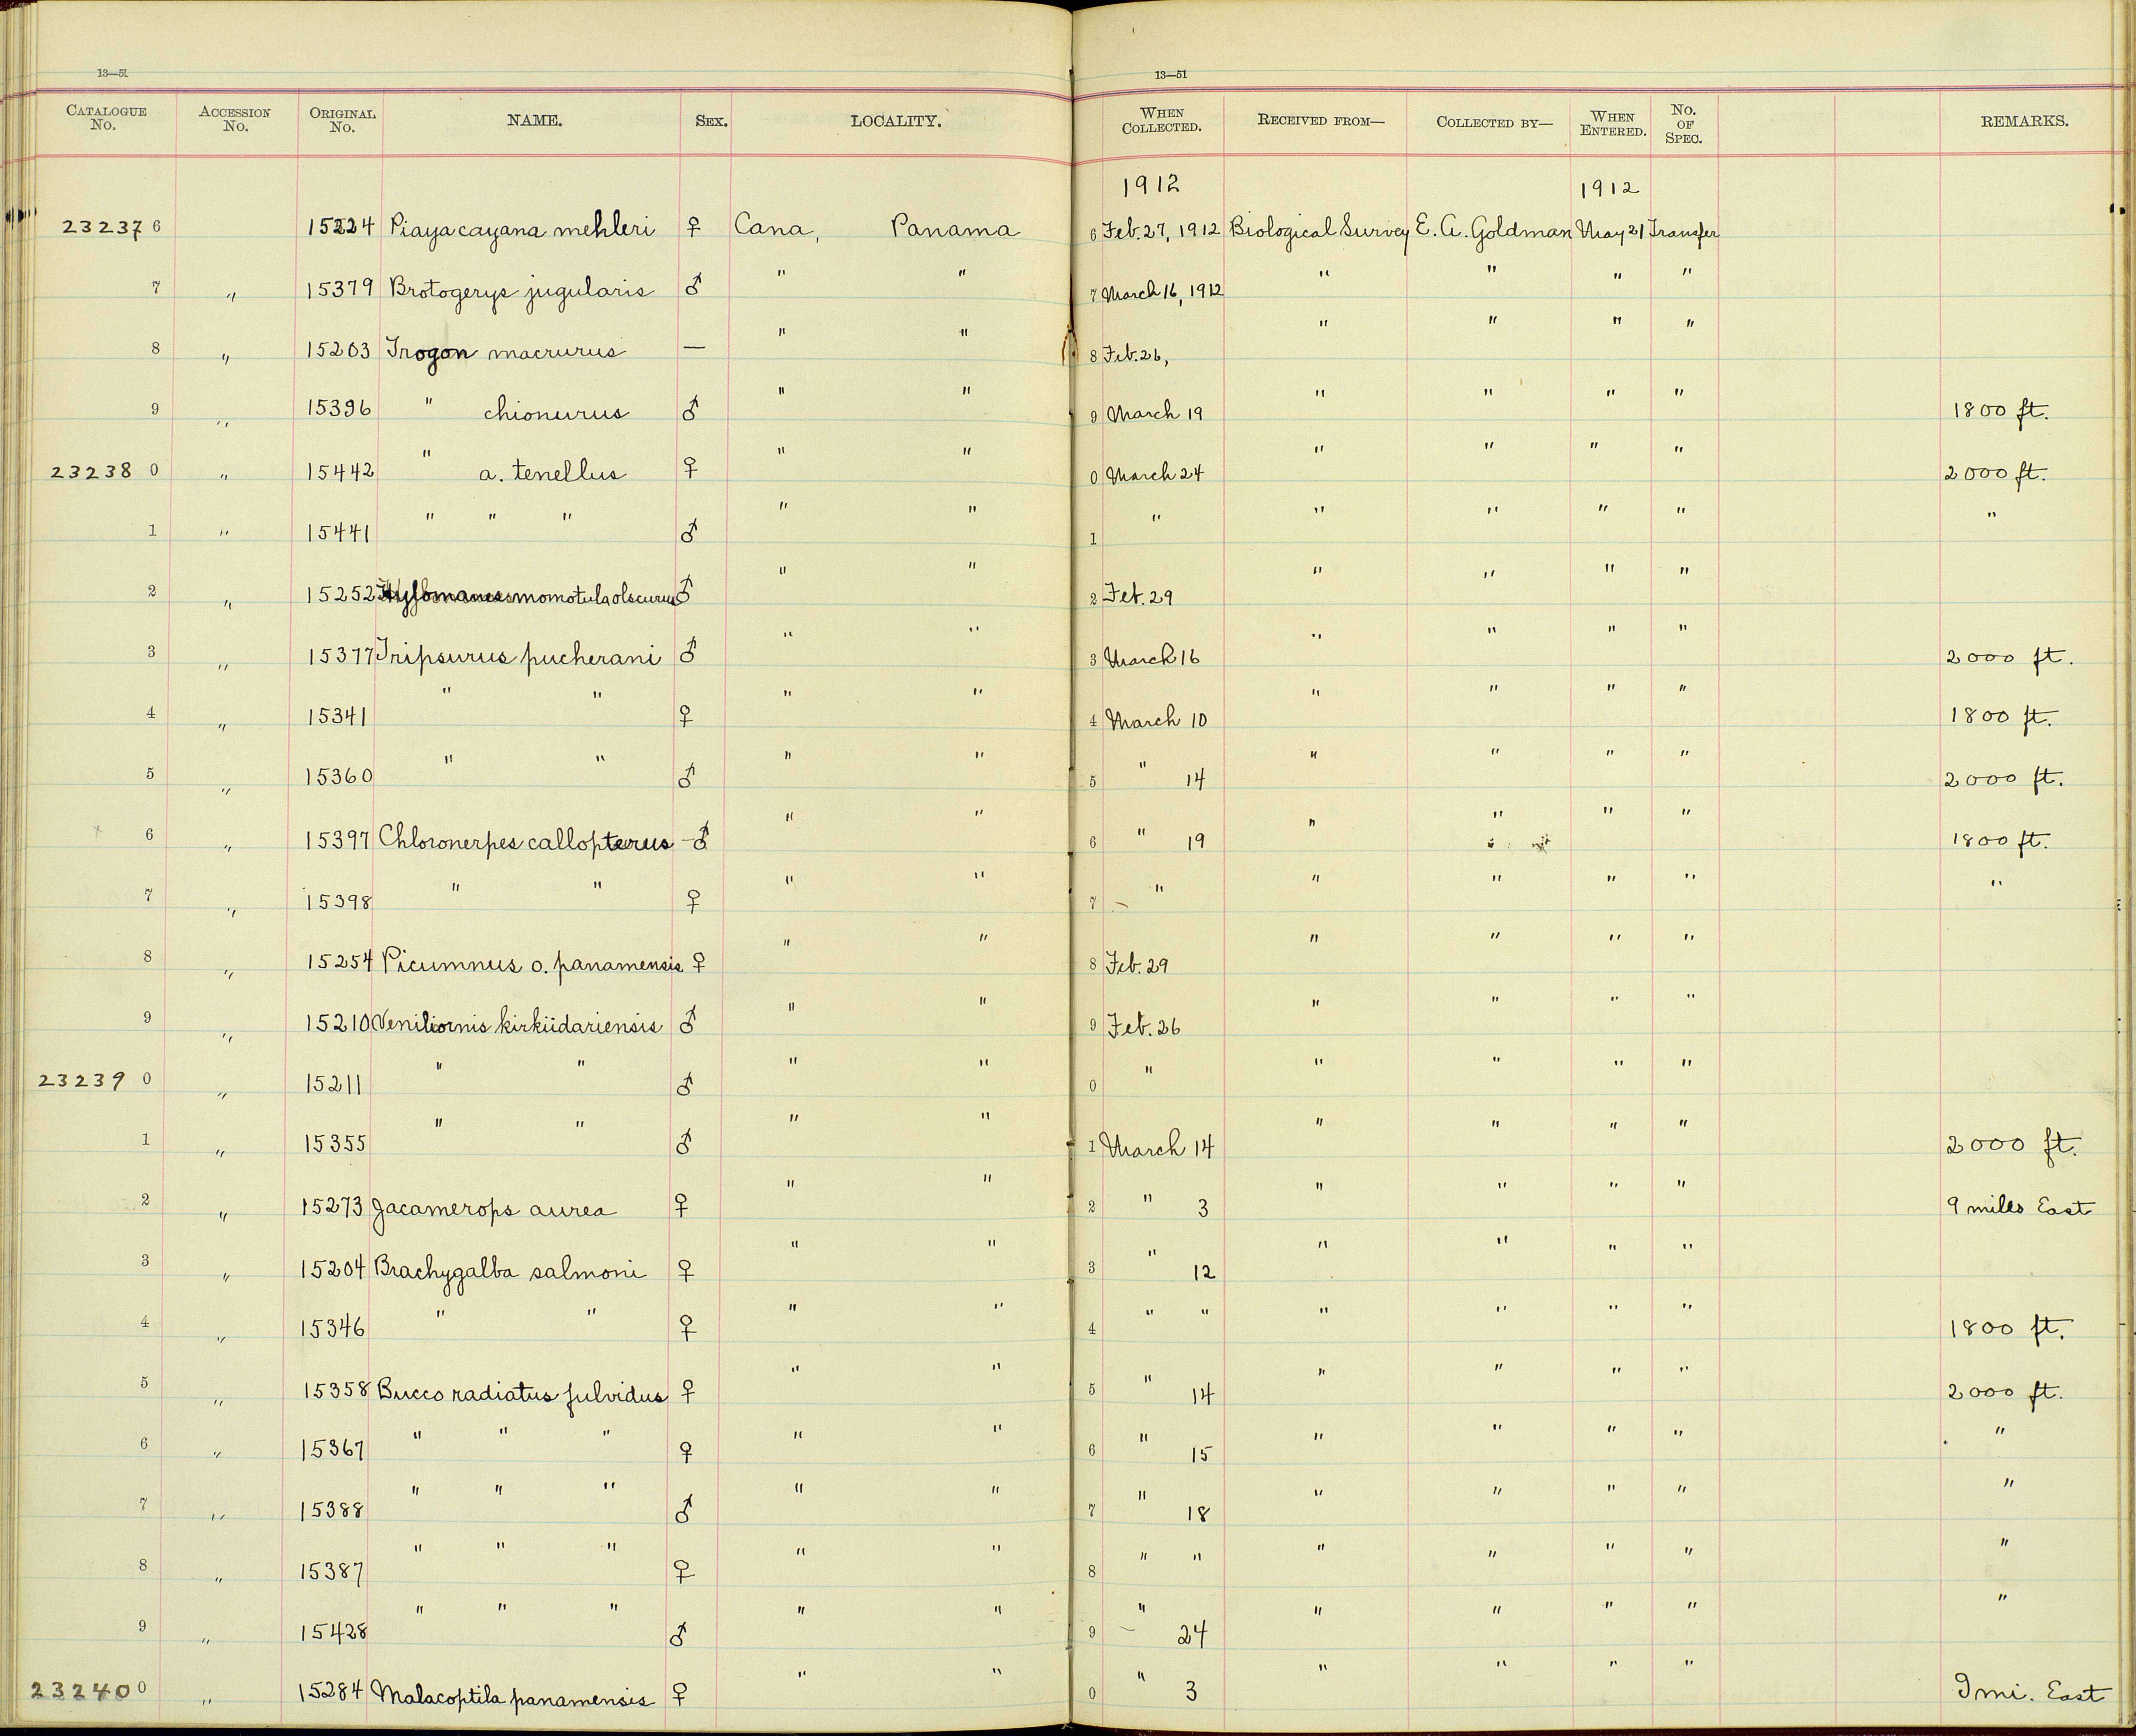 13—51 13—51
CATALOGUE No. ACCESSION No. ORIGINAL No. NAME. SEX. LOCALITY. WHEN COLLECTED. RECEIVED FROM— COLLECTED BY— WHEN ENTERED. No. OF SPEC. REMARKS.
1912 1912
232376 15224 Piaya cayana mehleri ♀ Cana, Panama 6 Feb. 27, 1912 Biological Survey E. A. Goldman May 21 Transfer
7 " 15379 Brotogerys jugularis ♂ " " 7 March 16, 1912 " " " "
8 " 15203 Trogon macrurus — " " 8 Feb. 26, " " " "
9 " 15396 " chionurus ♂ " " 9 March 19 " " " " 1800 ft.
232380 " 15442 " a. tenellus ♀ " " 0 March 24 " " " " 2000 ft.
1 " 15441 " " " ♂ " " 1 " " " " " "
2 " 15252 Hylomanes momotula olscurus ♂ " " 2 Feb. 29 " " " "
3 " 15377 Tripsurus pucherani ♂ " " 3 March 16 " " " " 2000 ft.
4 " 15341 " " ♀ " " 4 March 10 " " " " 1800 ft.
5 " 15360 " " ♂ " " 5 " 14 " " " " 2000 ft.
6 " 15397 Chloronerpes callopterus —♂ " " 6 " 19 " " " " 1800 ft.
7 " 15398 " " ♀ " " 7 " " " " " "
8 " 15254 Picumnus o. panamensis ♀ " " 8 Feb. 29 " " " "
9 " 15210 Veniliornis kirkii dariensis ♂ " " 9 Feb. 26 " " " "
232390 " 15211 " " ♂ " " 0 " " " " "
1 " 15355 " " ♂ " " 1 March 14 " " " " 2000 ft.
2 " 15273 Jacamerops aurea ♀ " " 2 " 3 " " " " 9 miles East
3 " 15204 Brachygalba salmoni ♀ " " 3 " 12 " " " "
4 " 15346 " " ♀ " " 4 " " " " " " 1800 ft.
5 " 15358 Bucco radiatus fulvidus ♀ " " 5 " 14 " " " " 2000 ft.
6 " 15367 " " " ♀ " " 6 " 15 " " " " "
7 " 15388 " " " ♂ " " 7 " 18 " " " " "
8 " 15387 " " " ♀ " " 8 " " " " " " "
9 " 15428 " " " ♂ " " 9 " 24 " " " " "
232400 " 15284 Malacoptila panamensis ♀ " " 0 " 3 " " " " 9 mi. East